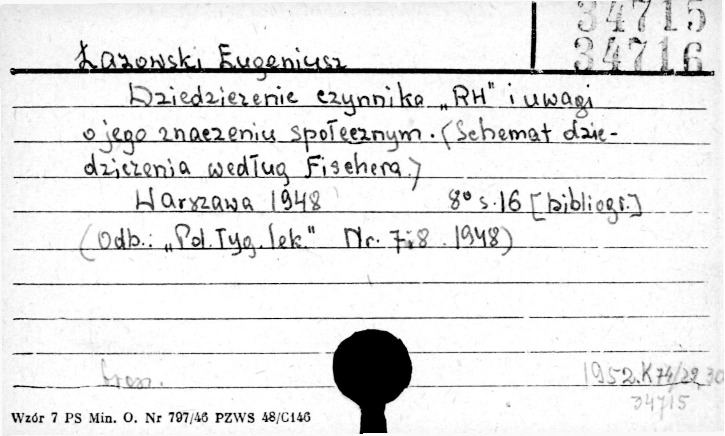 34715
34716
Łazowski Eugeniusz
Dziedziczenie czynnika „RH" i uwagi
o jego znaczeniu społecznym. (Schemat dzie-
dziczenia według Fischera.)
Warszawa 1948 8° s. 16 [bibliogr.]
(Odb.: „Pol. Tyg. lek." Nr. 7i8. 1948)
1952. K 74/29, 30
34715
Wzór 7 PS Min. O. Nr 797/46 PZWS 48/C146